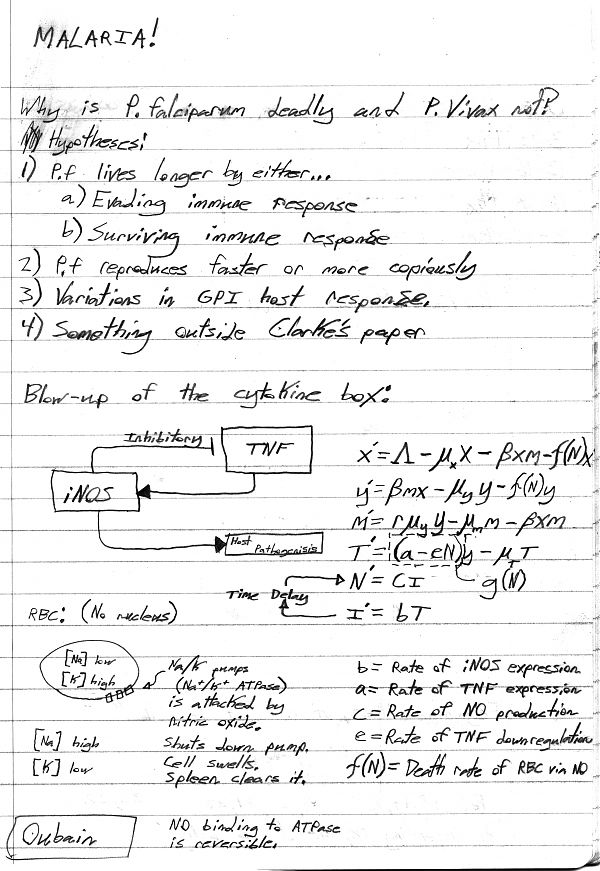 MALARIA!
Why is P. falciparum deadly and P. Vivax not?
Hypotheses:
1) P.f lives longer by either...
a) Evading immune response
b) Surviving immune response
2) P.f reproduces faster or more copiously
3) Variations in GPI host response.
4) Something outside Clarke's paper
Blow-up of the cytokine box:
Inhibitory
TNF
iNOS
Host Pathogenisis
x' = Λ - μₓx - βxm - f(N)x
y' = βmx - μ_y y - f(N)y
m' = rμ_y y - μ_m m - βxm
T' = (a - eN)y - μ_T T
N' = CI
g(N)
Time Delay
I' = bT
RBC: (No nucleus)
[Na] low
[K] high
Na/K pumps
(Na⁺/K⁺ ATPase)
is attacked by
nitric oxide.
[Na] high
Shuts down pump.
[K] low
Cell swells.
Spleen clears it.
b = Rate of iNOS expression
a = Rate of TNF expression
c = Rate of NO production
e = Rate of TNF downregulation
f(N) = Death rate of RBC via NO
Oubain
NO binding to ATPase
is reversible.